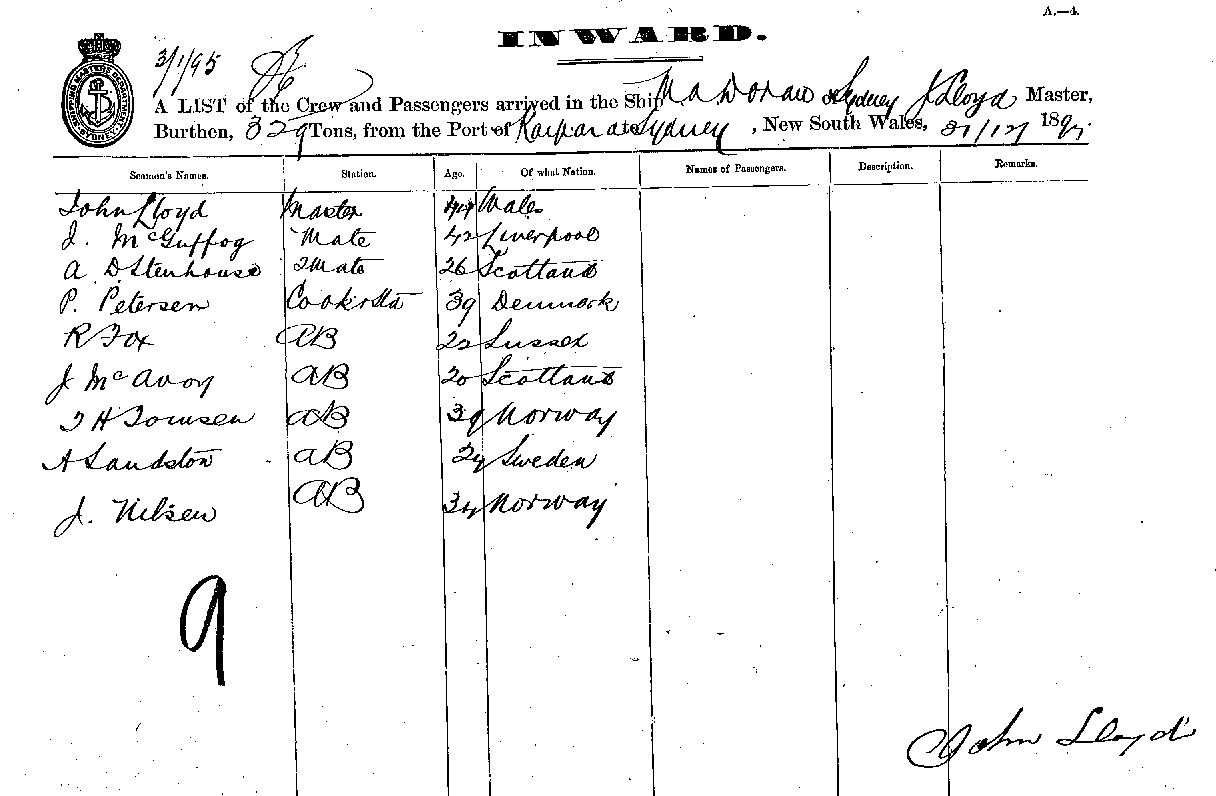 A.—4.
INWARD.
3/1/95
A LIST of the Crew and Passengers arrived in the Ship Ma Doran of Sydney J Lloyd Master,
Burthen, 329 Tons, from the Port of Kaipara to Sydney, New South Wales, 31/12/189
Seamen's Names. Station. Age. Of what Nation. Names of Passengers. Description. Remarks.
John Lloyd Master 44 Wales
J. McGuffog Mate 42 Liverpool
A D Stenhouse 2 Mate 26 Scotland
P. Petersen Cook & Std 39 Denmark
R Fox AB 22 Sussex
J McAvoy AB 20 Scotland
T H Tomsen AB 39 Norway
A Sandston AB 24 Sweden
J. Nilsen AB 34 Norway
9
John Lloyd